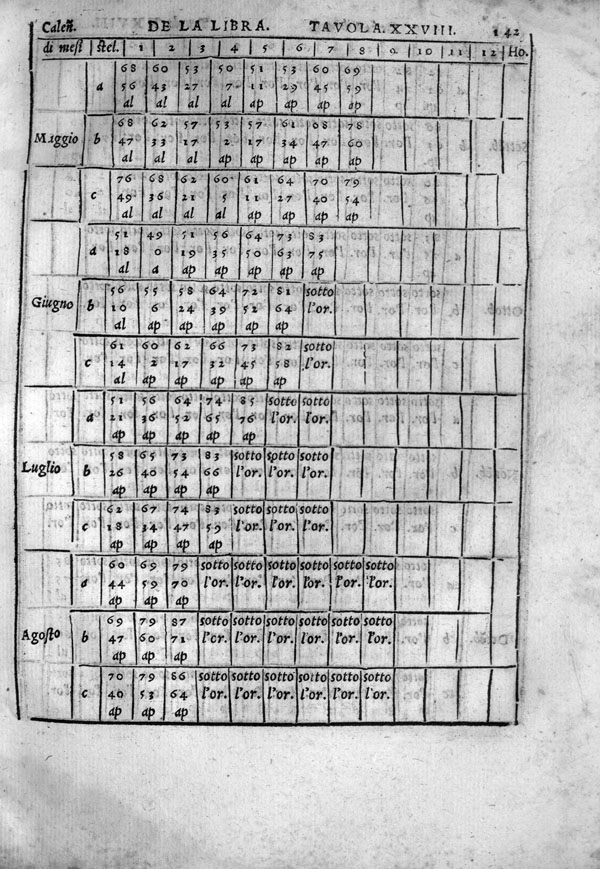 Caleñ. DE LA LIBRA. TAVOLA. XXVIII. 142
di mesi stel. 1 2 3 4 5 6 7 8 9 10 11 12 Ho.
68 60 53 50 51 53 60 69
a 56 43 27 7 11 29 45 59
al al al al ap ap ap ap
68 62 57 53 57 61 68 78
Maggio b 47 33 17 2 17 34 47 60
al al al al ap ap ap ap
76 68 62 60 61 64 70 79
c 49 36 21 5 11 27 40 54
al al al al ap ap ap ap
51 49 51 56 64 73 83
a 18 0 19 35 50 63 75
al a ap ap ap ap ap
56 55 58 64 72 81 sotto
Giugno b 10 6 24 39 52 64 l'or.
al ap ap ap ap ap
61 60 62 66 73 82 sotto
c 14 2 17 32 45 58 l'or.
al ap ap ap ap ap
51 56 64 74 85 sotto sotto
a 21 36 52 65 76 l'or. l'or.
ap ap ap ap ap
58 65 73 83 sotto sotto sotto
Luglio b 26 40 54 66 l'or. l'or. l'or.
ap ap ap ap
62 67 74 83 sotto sotto sotto
c 18 34 47 59 l'or. l'or. l'or.
ap ap ap ap
60 69 79 sotto sotto sotto sotto sotto sotto
a 44 59 70 l'or. l'or. l'or. l'or. l'or. l'or.
ap ap ap
69 79 87 sotto sotto sotto sotto sotto sotto
Agosto b 47 60 71 l'or. l'or. l'or. l'or. l'or. l'or.
ap ap ap
70 79 86 sotto sotto sotto sotto sotto sotto
c 40 53 64 l'or. l'or. l'or. l'or. l'or. l'or.
ap ap ap